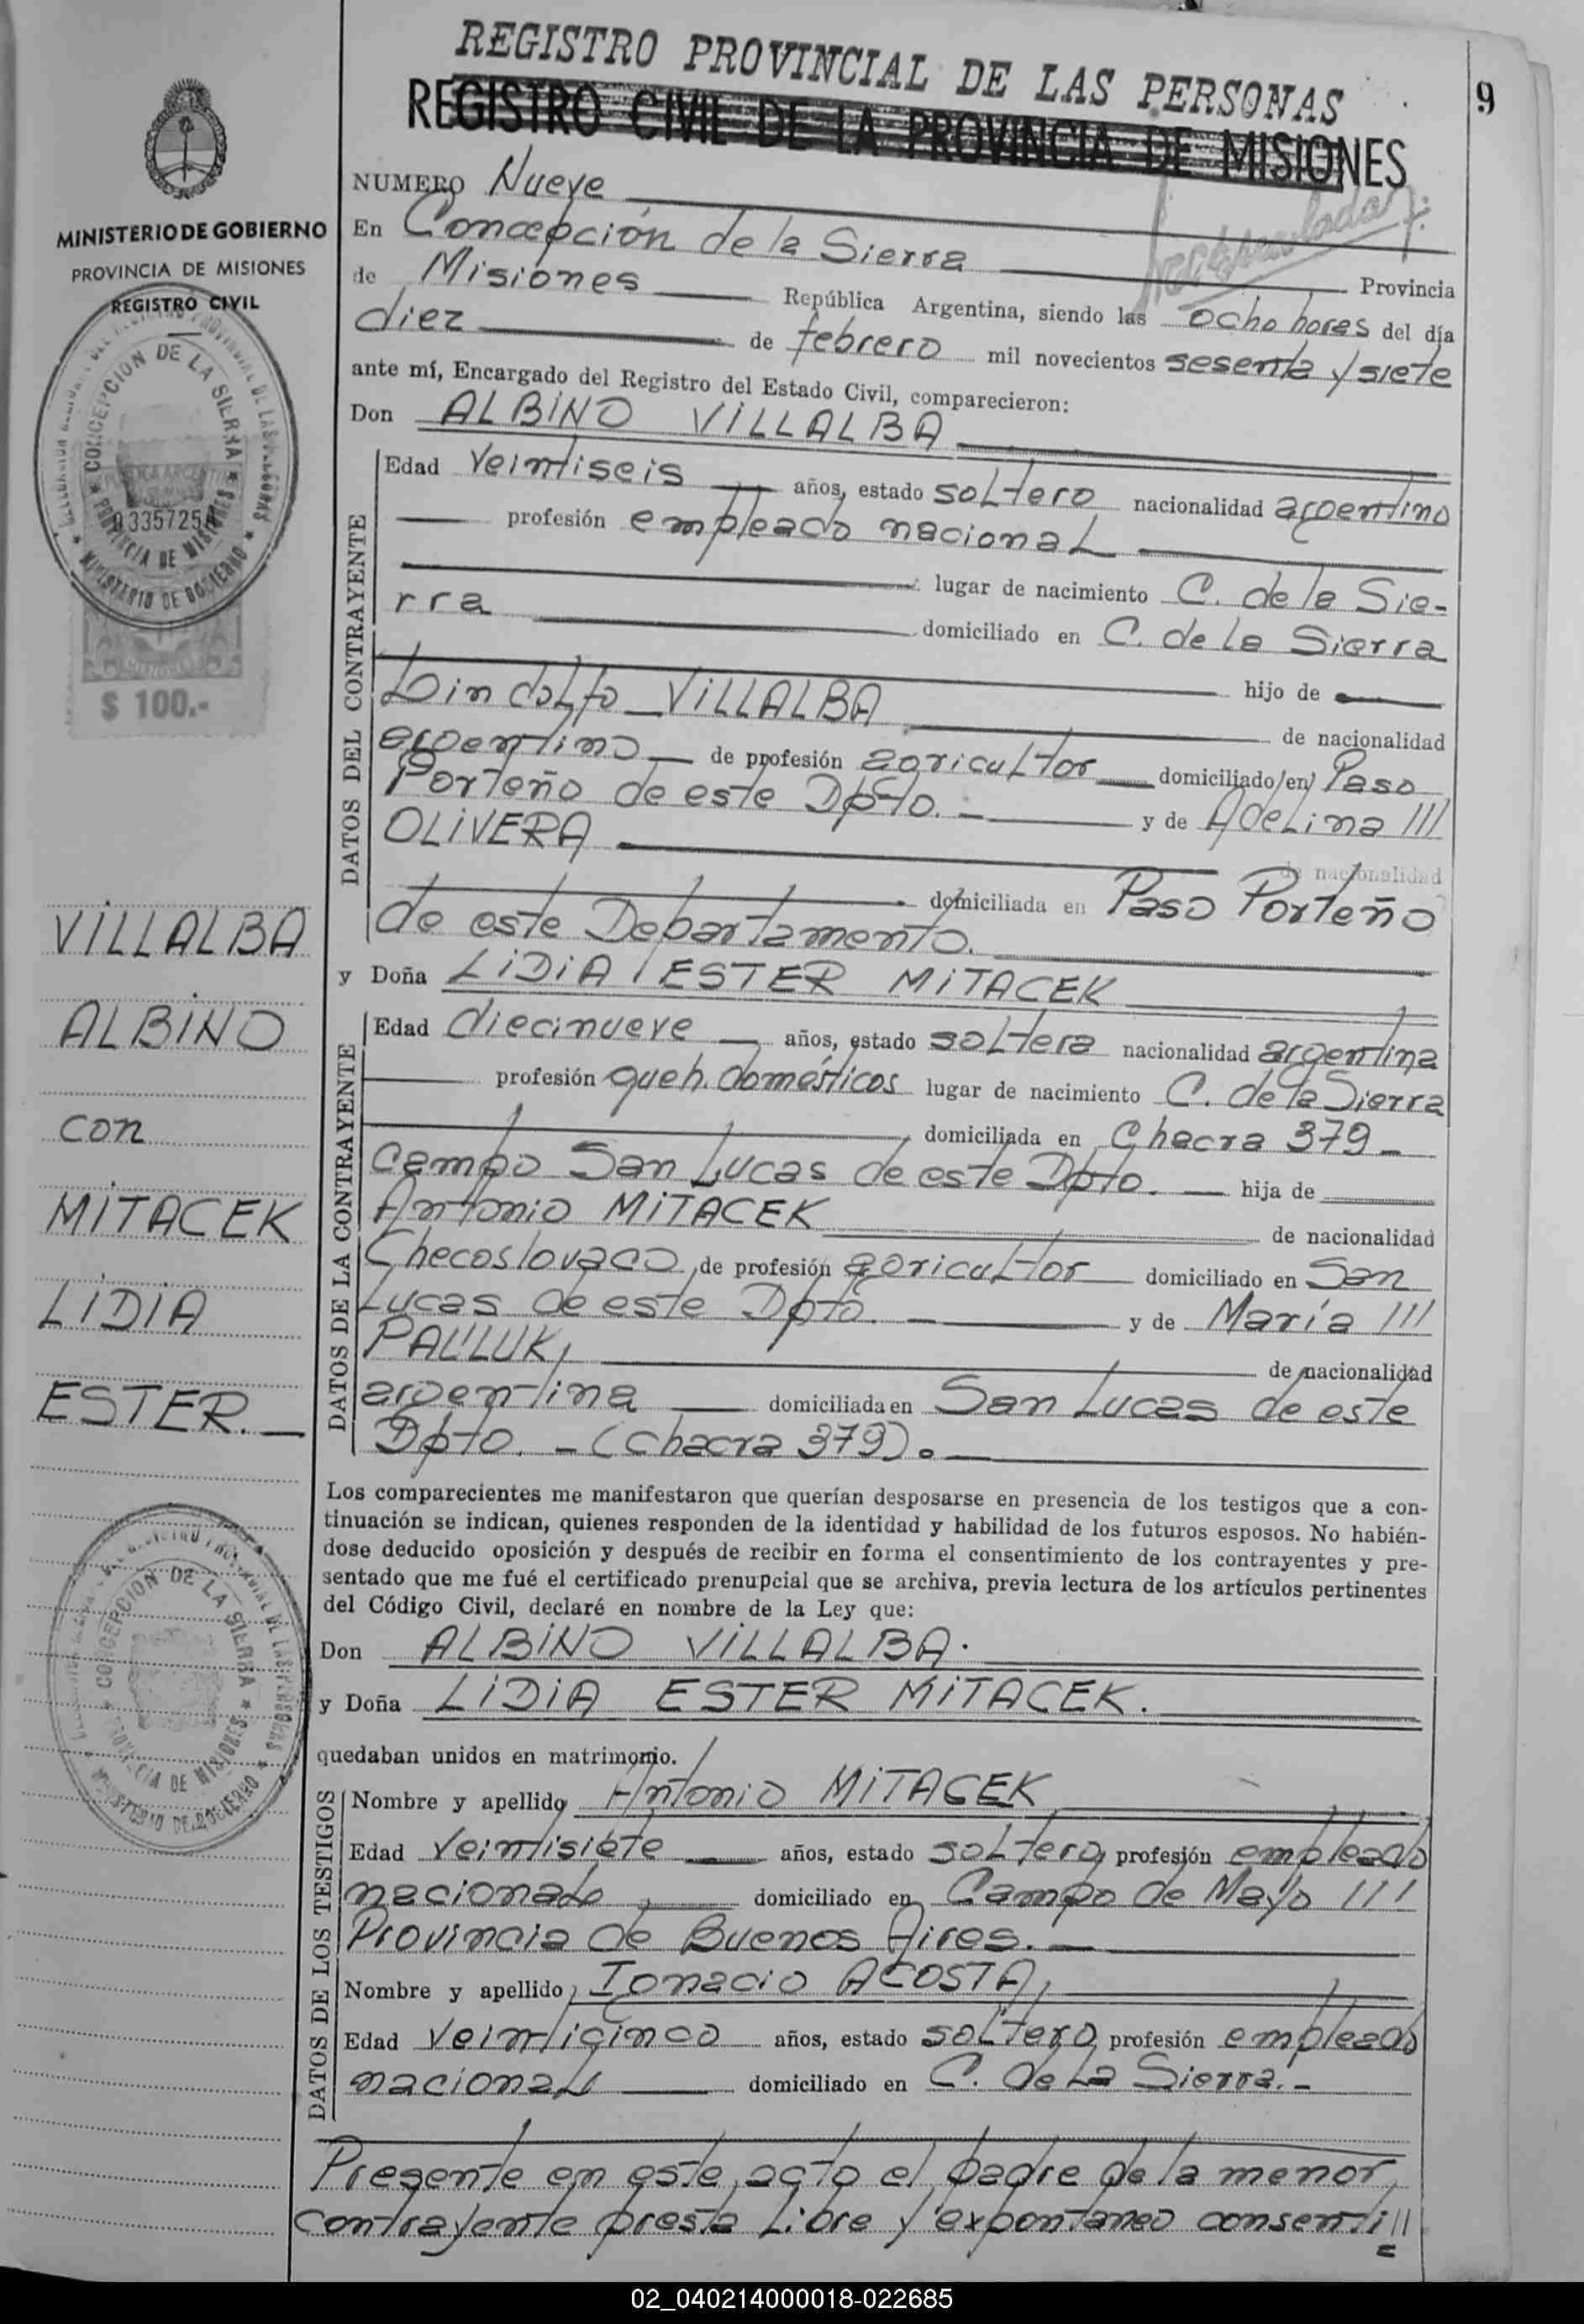 REGISTRO PROVINCIAL DE LAS PERSONAS
9
REGISTRO CIVIL DE LA PROVINCIA DE MISIONES
MINISTERIO DE GOBIERNO
PROVINCIA DE MISIONES
REGISTRO CIVIL
CONCEPCION DE LA SIERRA
PROVINCIA DE MISIONES
MINISTERIO DE GOBIERNO
$ 100.-
VILLALBA
ALBINO
con
MITACEK
LIDIA
ESTER.—
CONCEPCION DE LA SIERRA
PROVINCIA DE MISIONES
MINISTERIO DE GOBIERNO
NUMERO Nueve
En Concepción de la Sierra Provincia
de Misiones República Argentina, siendo las ocho horas del día
diez de febrero mil novecientos sesenta y siete
ante mí, Encargado del Registro del Estado Civil, comparecieron:
Don ALBINO VILLALBA
DATOS DEL CONTRAYENTE
Edad veintiseis años, estado soltero nacionalidad argentino
profesión empleado nacional
lugar de nacimiento C. de la Sie-
rra domiciliado en C. de la Sierra
hijo de
Lindolfo VILLALBA de nacionalidad
argentino de profesión agricultor domiciliado en Paso
Porteño de este Dpto. - y de Adelina ///
OLIVERA de nacionalidad
domiciliada en Paso Porteño
de este Departamento.
y Doña LIDIA ESTER MITACEK
DATOS DE LA CONTRAYENTE
Edad diecinueve años, estado soltera nacionalidad argentina
profesión queh. domésticos lugar de nacimiento C. de la Sierra
domiciliada en Chacra 379 -
campo San Lucas de este Dpto. - hija de
Antonio MITACEK de nacionalidad
Checoslovaco de profesión agricultor domiciliado en San
Lucas de este Dpto. - y de María ///
PAULUK, de nacionalidad
argentina domiciliada en San Lucas de este
Dpto. - (chacra 379).
Los comparecientes me manifestaron que querían desposarse en presencia de los testigos que a con-
tinuación se indican, quienes responden de la identidad y habilidad de los futuros esposos. No habién-
dose deducido oposición y después de recibir en forma el consentimiento de los contrayentes y pre-
sentado que me fué el certificado prenupcial que se archiva, previa lectura de los artículos pertinentes
del Código Civil, declaré en nombre de la Ley que:
Don ALBINO VILLALBA.
y Doña LIDIA ESTER MITACEK.
quedaban unidos en matrimonio.
DATOS DE LOS TESTIGOS
Nombre y apellido Antonio MITACEK
Edad veintisiete años, estado soltero, profesión empleado
nacional domiciliado en Campo de Mayo ///
Provincia de Buenos Aires.-
Nombre y apellido Ignacio ACOSTA,
Edad veinticinco años, estado soltero profesión empleado
nacional domiciliado en C. de la Sierra.-
Presente en este acto el padre de la menor
contrayente presta libre y expontaneo consenti//
02_040214000018-022685